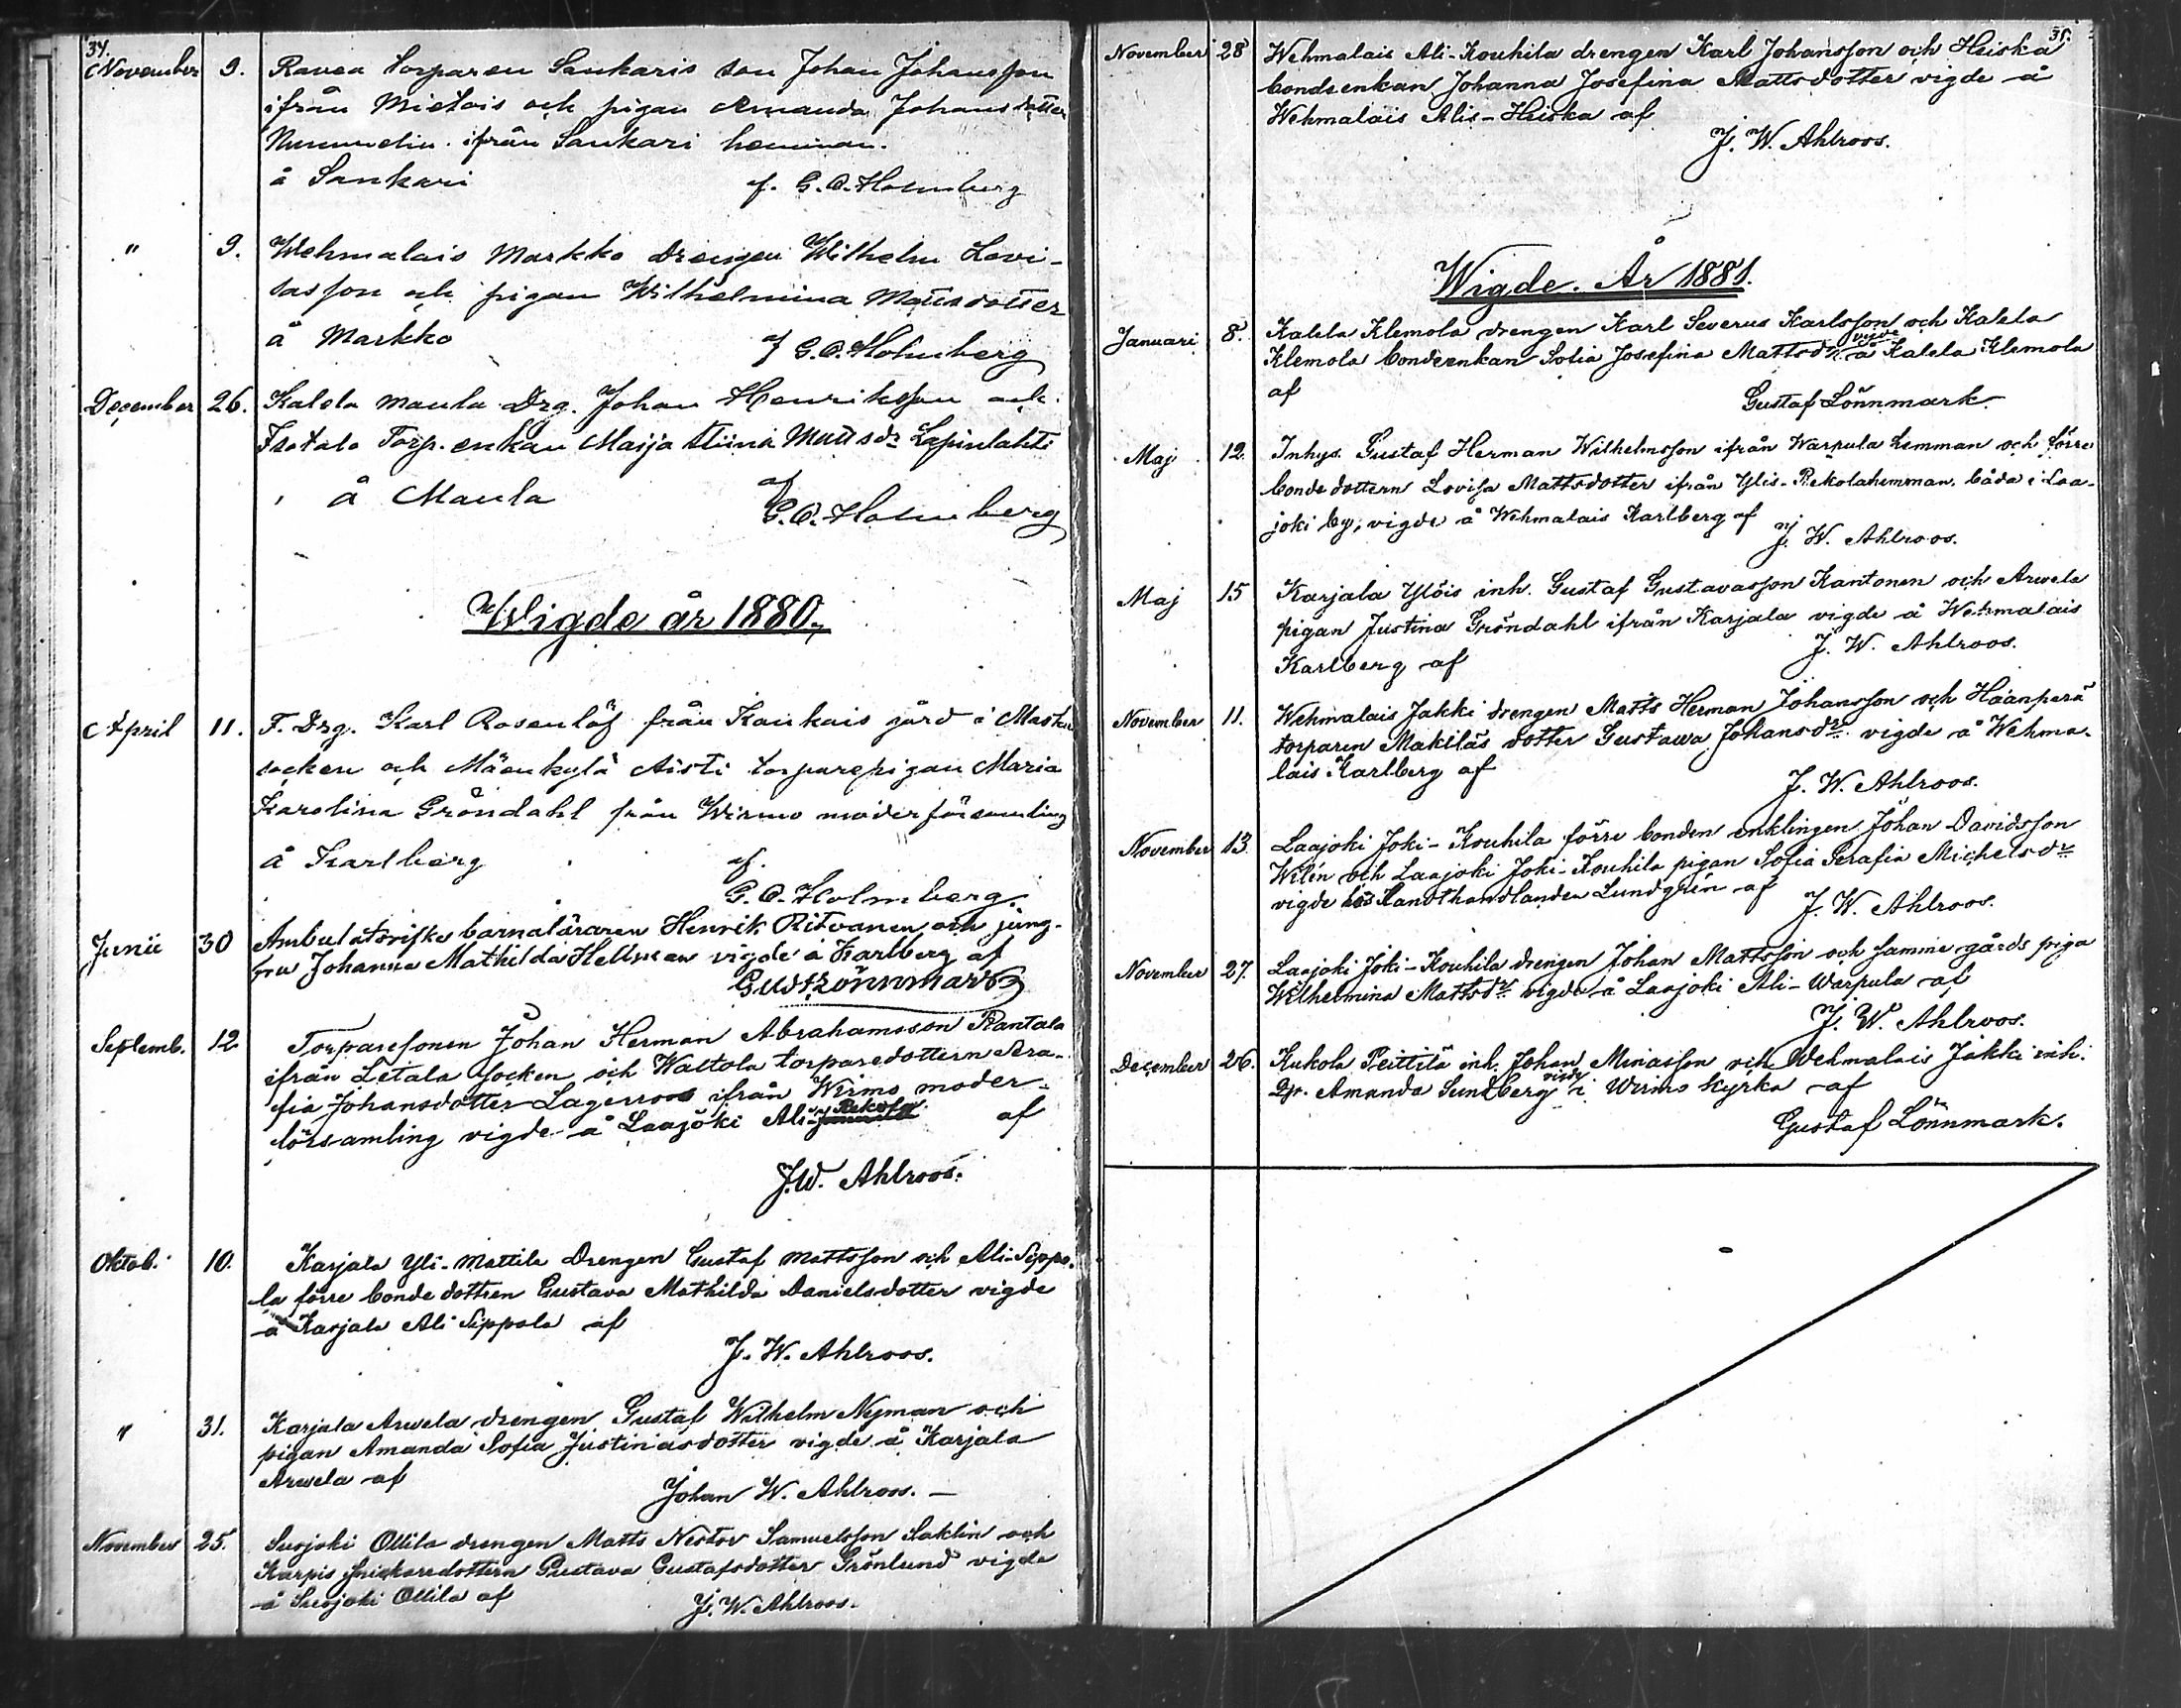 34.
November 9. Ravea torparen Sankaris son Johan Johansson
ifrån Mietois och pigan Amanda Johansdotter
Nummelin ifrån Sankari hemman.
å Sankari af. G. O. Holmberg
" 9. Wehmalais Markko Drengen Wilhelm Lovi-
sasson och pigan Wilhelmina Mattsdotter
å Markko af G. O. Holmberg
December 26. Kalela Maula Drg. Johan Henriksson och
Isotalo Torp. enkan Maija Stina Mattsdr Lapinlahti
å Maula af
G. O. Holmberg
Wigde år 1880.
April 11. F. Drg. Karl Rosenlöf från Kankais gård i Masku
socken och Mäenkylä Aisti torparepigan Maria
Karolina Gröndahl från Wirmo moderförsamling
å Karlberg af.
G. O. Holmberg.
Junii 30 Ambulatoriske barnaläraren Henrik Ritvanen och jung-
fru Johanna Mathilda Hellman vigde å Karlberg af
Gust Lönnmark
Septemb. 12 Torparesonen Johan Herman Abrahamsson Rantala
ifrån Letala socken och Waltola torparedottern Sera-
fia Johansdotter Lagerroos ifrån Wirmo moder-
församling vigde å Laajoki Ali-Rekola af
J. W. Ahlroos.
Oktob. 10. Karjala Yli-Mattila Drengen Gustaf Mattsson och Ali-Sippo-
la förre bonde dottren Gustava Mathilda Danielsdotter vigde
å Karjala Ali Sippola af
J. W. Ahlroos.
" 31. Karjala Arwela drengen Gustaf Wilhelm Nyman och
pigan Amanda Sofia Justinasdotter vigde å Karjala
Arwela af
Johan W. Ahlroos. —
November 25. Suojoki Ollila drengen Matts Nestor Samuelsson Saklin och
Karpis snickaredottern Gustava Gustafsdotter Grönlund vigde
å Suojoki Ollila af
J. W. Ahlroos.
35.
November 28 Wehmalais Ali-Kouhila drengen Karl Johansson och Heiska
bondeenkan Johanna Josefina Mattsdotter vigde å
Wehmalais Alis-Heiska af
J. W. Ahlroos.
Wigde. År 1881.
Januari 8. Kalela Klemola drengen Karl Severus Karlsson och Kalela
Klemola bondeenkan Sofia Josefina Mattsdr vigde å Kalela Klemola
af
Gustaf Lönnmark
Maj 12. Inhys. Gustaf Herman Wilhelmsson ifrån Warpula hemman och förre
bonde dottern Lovisa Mattsdotter ifrån Ylis-Rekolahemman, båda i Laa-
joki by, vigde å Wehmalais Karlberg af
J. W. Ahlroos.
Maj 15 Karjala Ylöis inh. Gustaf Gustavasson Kantonen och Arwela
pigan Justina Gröndahl ifrån Karjala vigde å Wehmalais
Karlberg af J. W. Ahlroos.
November 11. Wehmalais Jakki drengen Matts Herman Johansson och Haanperä
torparen Makiläs dotter Gustawa Johansdr vigde å Wehma-
lais Karlberg af
J. W. Ahlroos.
November 13. Laajoki Joki-Kouhila förre bonden enklingen Johan Davidsson
Wilén och Laajoki Joki-Kouhila pigan Sofia Serafia Michelsdr
vigde hos Handthandlanden Lundgrén af
J. W. Ahlroos.
November 27. Laajoki Joki-Kouhila drengen Johan Mattsson och samme gårds piga
Wilhelmina Mattsdr vigde å Laajoki Ali-Warpula af
J. W. Ahlroos.
December 26. Kukola Peittilä inh. Johan Minasson och Wehmalais Jakki inh.
Amanda Sundberg vigde i Wirmo kyrka af
Gustaf Lönnmark.